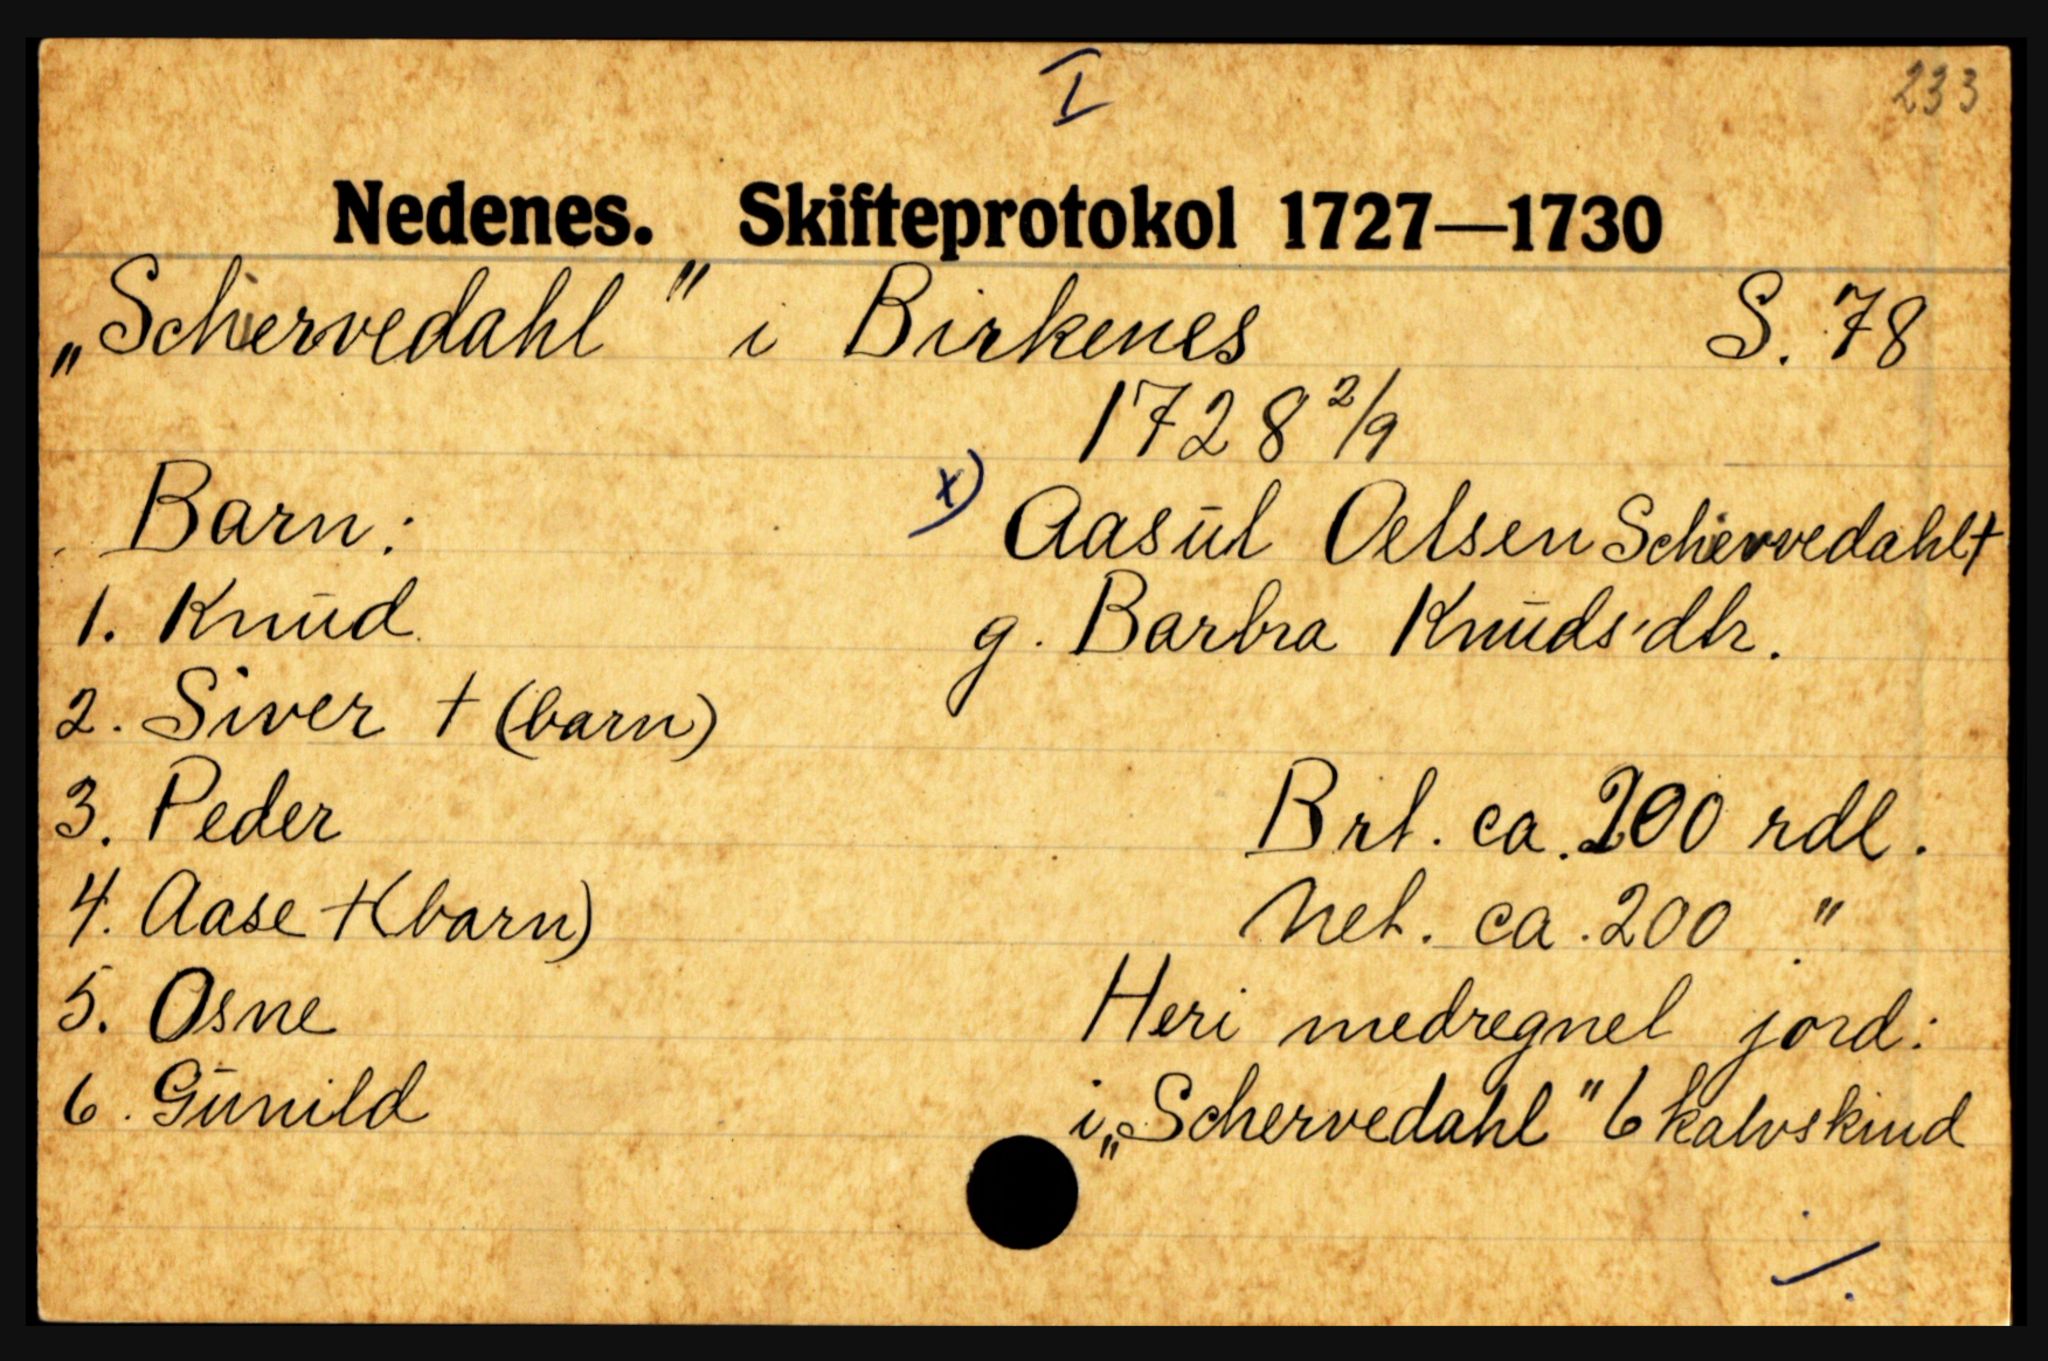 I
233
Nedenes. Skifteprotokol 1727—1730
„Schervedahl" i Birkenes S. 78
1728 2/9
Barn:
x) Aasūl Oelsen Schervedahl †
1. Knūd
g. Barbra Knūds'dtr.
2. Siver † (barn)
3. Peder
Brt. ca. 200 rdl.
4. Aase † (barn)
Net. ca. 200 "
5. Osne
Heri medregnet jord:
6. Gūnild
i „Schervedahl" 6 kalvskind